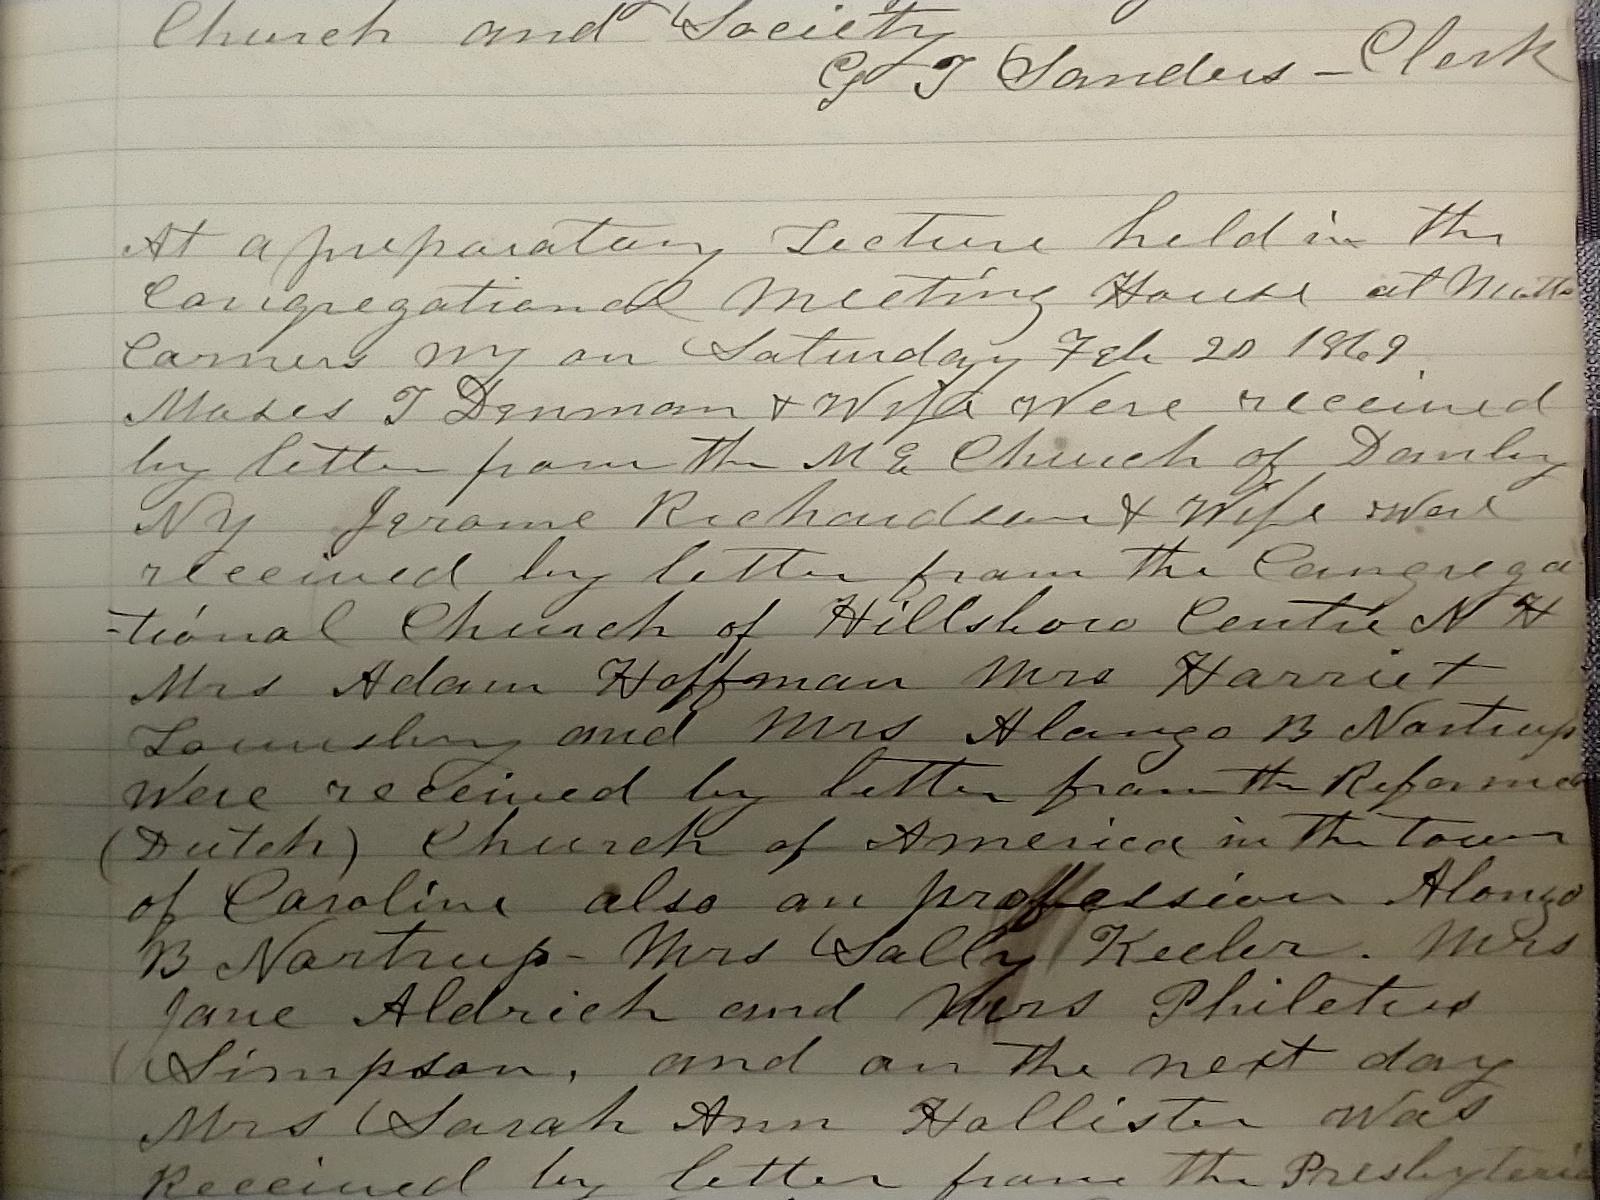 Church and Society
G T Sanders - Clerk
At a preparatory Lecture held in the
Congregational Meeting House at Motts
Corners NY on Saturday Feb 20 1869
Moses T Denman & Wife Were received
by letter from the M E Church of Danby
NY Jerome Richardson & Wife were
received by letter from the Congrega
-tional Church of Hillsboro Centre N H
Mrs Adam Hoffman Mrs Harriet
Lounsbery and Mrs Alonzo B Nortrup
Were received by letter from the Reformed
(Dutch) Church of America in the town
of Caroline also on profession Alonzo
B Nortrup - Mrs Sally Keeler. Mrs
Jane Aldrich and Mrs Philetus
Simpson, and on the next day
Mrs Sarah Ann Hollister was
Received by letter from the Presbyteria